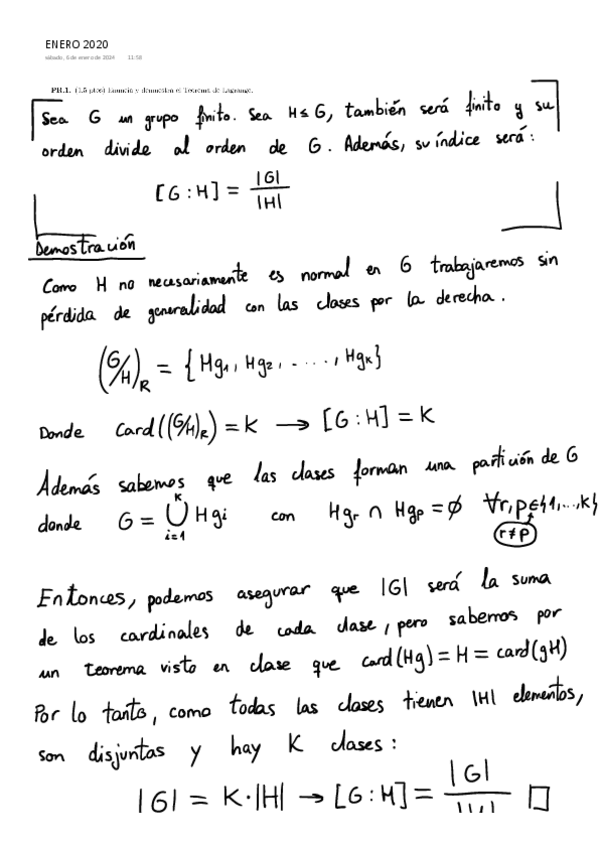 ENERO 2020
sábado, 6 de enero de 2024 11:58
PR.1. (1.5 ptos) Enuncia y demuestra el Teorema de Lagrange.
Sea G un grupo finito. Sea H ≤ G, también será finito y su
orden divide al orden de G. Además, su índice será:
[G:H] = |G| / |H|
Demostración
Como H no necesariamente es normal en G trabajaremos sin
pérdida de generalidad con las clases por la derecha.
(G/H)_R = {Hg₁, Hg₂, ...., Hgₖ}
Donde card((G/H)_R) = K → [G:H] = K
Además sabemos que las clases forman una partición de G
donde G = ⋃_{i=1}^{K} Hgi con Hgr ∩ Hgp = ∅ ∀r,p∈{1,...,k}
r≠p
Entonces, podemos asegurar que |G| será la suma
de los cardinales de cada clase, pero sabemos por
un teorema visto en clase que card(Hg) = H = card(gH)
Por lo tanto, como todas las clases tienen |H| elementos,
son disjuntas y hay K clases:
|G| = K·|H| → [G:H] = |G| / |H| □